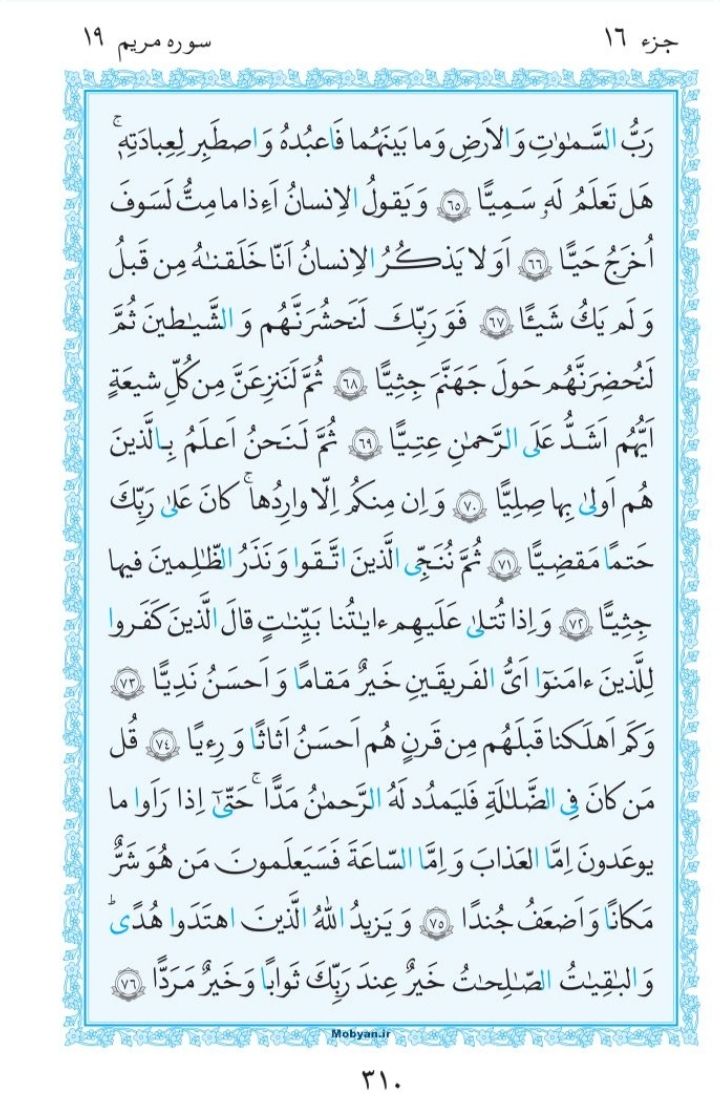 جزء ١٦
سوره مریم ١٩
رَبُّ السَّمٰوٰتِ وَ الاَرضِ وَ ما بَینَهُما فَاعبُدهُ وَ اصطَبِر لِعِبادَتِهٖۚ
هَل تَعلَمُ لَهٗ سَمِیًّا ﴿٦٥﴾ وَ یَقولُ الاِنسانُ اَءِذا ما مِتُّ لَسَوفَ
اُخرَجُ حَیًّا ﴿٦٦﴾ اَوَ لا یَذکُرُ الاِنسانُ اَنّا خَلَقنٰهُ مِن قَبلُ
وَ لَم یَكُ شَیـًٔا ﴿٦٧﴾ فَوَ رَبِّكَ لَنَحشُرَنَّهُم وَ الشَّیٰطینَ ثُمَّ
لَنُحضِرَنَّهُم حَولَ جَهَنَّمَ جِثِیًّا ﴿٦٨﴾ ثُمَّ لَنَنزِعَنَّ مِن كُلِّ شیعَةٍ
اَیُّهُم اَشَدُّ عَلَى الرَّحمٰنِ عِتِیًّا ﴿٦٩﴾ ثُمَّ لَنَحنُ اَعلَمُ بِالَّذینَ
هُم اَولىٰ بِها صِلِیًّا ﴿٧٠﴾ وَ اِن مِنكُم اِلّا وارِدُهاۚ كانَ عَلىٰ رَبِّكَ
حَتمًا مَقضِیًّا ﴿٧١﴾ ثُمَّ نُنَجِّى الَّذینَ اتَّقَوا وَ نَذَرُ الظّٰلِمینَ فیها
جِثِیًّا ﴿٧٢﴾ وَ اِذا تُتلىٰ عَلَیهِم ءایٰتُنا بَیِّنٰتٍ قالَ الَّذینَ كَفَروا
لِلَّذینَ ءامَنوٓا اَىُّ الفَریقَینِ خَیرٌ مَقامًا وَ اَحسَنُ نَدِیًّا ﴿٧٣﴾
وَ كَم اَهلَكنا قَبلَهُم مِن قَرنٍ هُم اَحسَنُ اَثاثًا وَ رِءیًا ﴿٧٤﴾ قُل
مَن كانَ فِى الضَّلٰلَةِ فَلیَمدُد لَهُ الرَّحمٰنُ مَدًّاۚ حَتّىٰٓ اِذا رَاَوا ما
یوعَدونَ اِمَّا العَذابَ وَ اِمَّا السّاعَةَ فَسَیَعلَمونَ مَن هُوَ شَرٌّ
مَكانًا وَ اَضعَفُ جُندًا ﴿٧٥﴾ وَ یَزیدُ اللّٰهُ الَّذینَ اهتَدَوا هُدًىؕ
وَ البٰقِیٰتُ الصّٰلِحٰتُ خَیرٌ عِندَ رَبِّكَ ثَوابًا وَ خَیرٌ مَرَدًّا ﴿٧٦﴾
Mobyan.ir
٣١٠